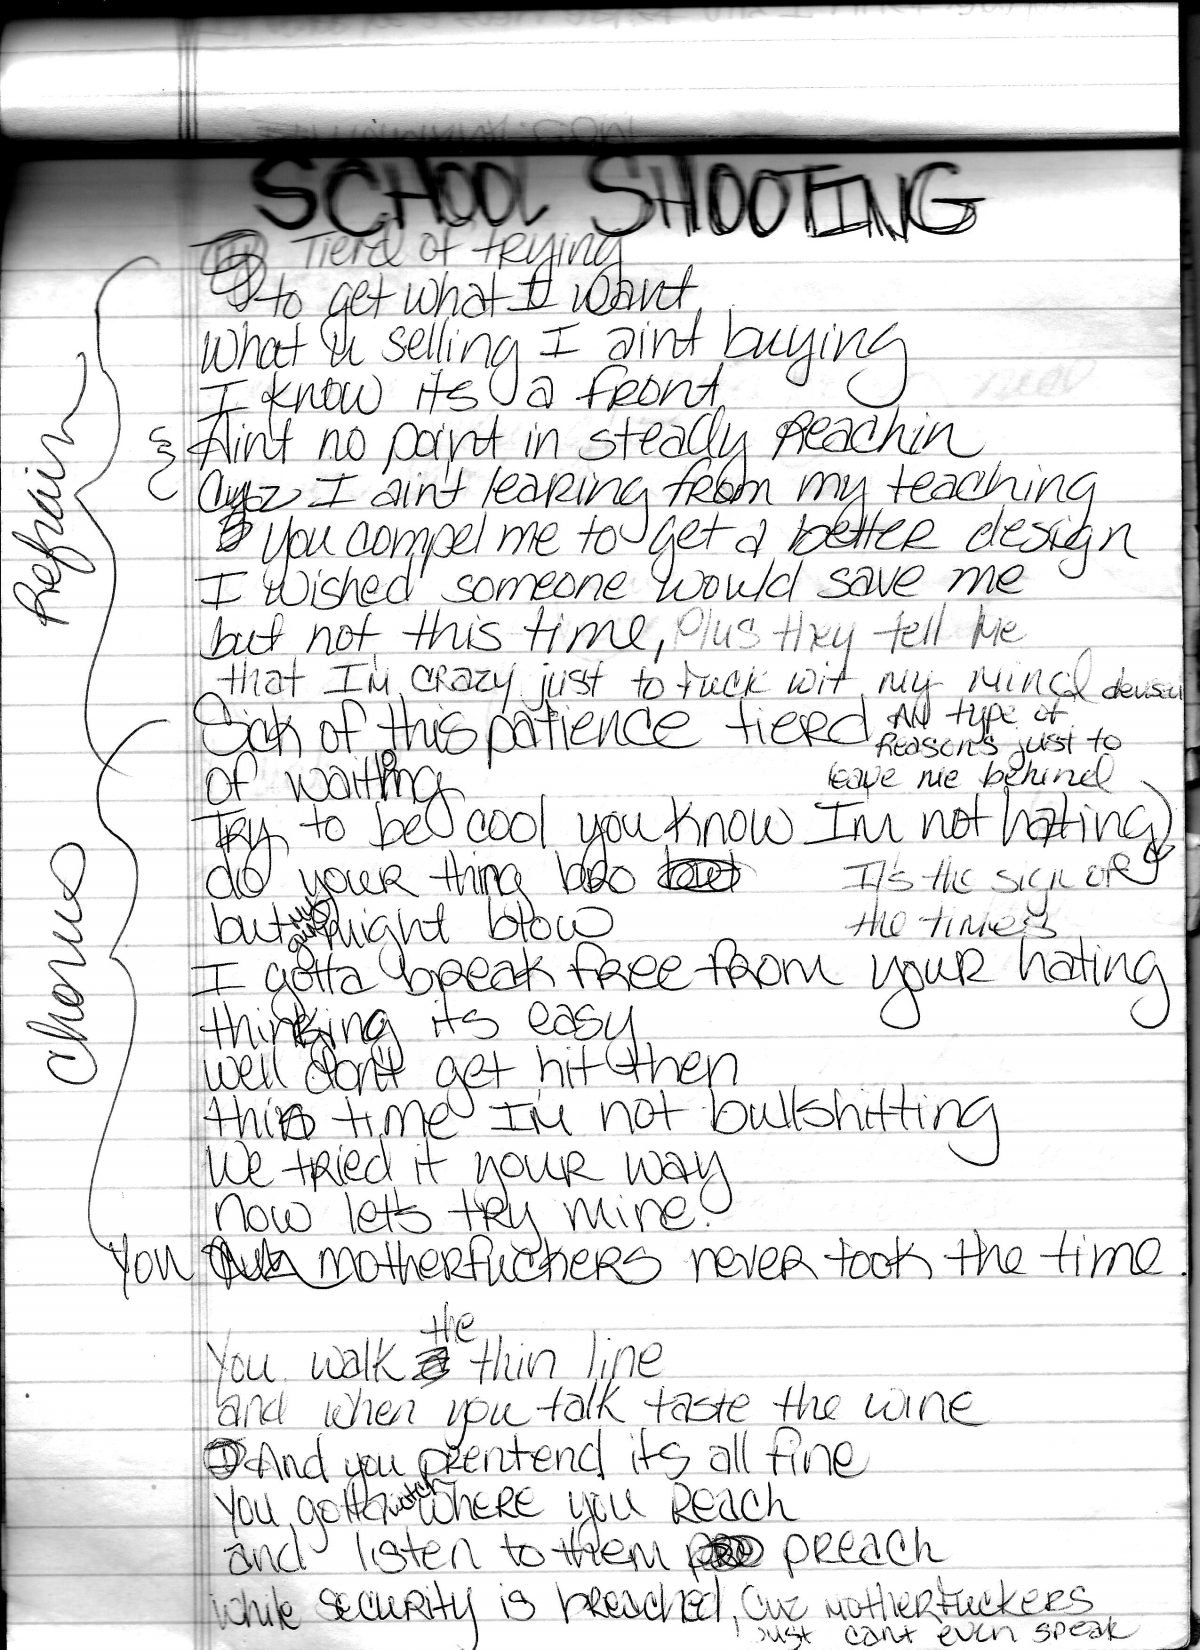 SCHOOL SHOOTING
Tierd of trying
to get what I want
what u selling I aint buying
I know its a front
Refrain
Aint no point in steady Reachin
Cuz I ain't learing from my teaching
You compel me to get a better design
I wished someone would save me
but not this time, Plus they tell Me
that I'm crazy just to fuck wit my mind
Sick of this patience tierd
All type of
Reasons just to
leave me behind
of waiting
Try to be cool you know Im not hating
do your thing bro
It's the sign of
the times
but might blow
I gotta break free from your hating
Chorus
thinking its easy
well don't get hit then
this time I'm not bullshitting
We tried it your way
now lets try mine.
You Motherfuckers never took the time.
the
You walk thin line
and when you talk taste the wine
And you prentend its all fine
You gotta watch where you Reach
and listen to them preach
while security is breached, Cuz Motherfuckers
just cant even speak